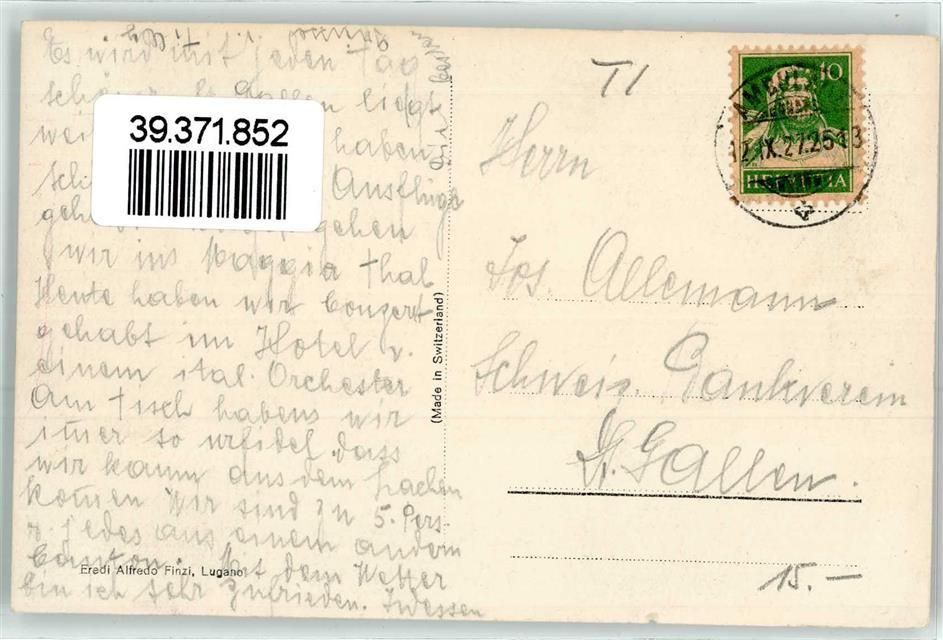 Es wird mit jeden Tag
schöner St. Gallen liegt
weit haben
Ausflüge
gehen
wir ins Maggia thal
Heute haben wir Conzert
gehabt im Hotel v.
einem ital. Orchester
Am Tisch habens wir
imer so urfidel dass
wir kaum aus dem Lachen
komen Wir sind zu 5. Pers.
u. jedes aus einem andern
Canton. Mit dem Wetter
bin ich sehr zufrieden. Indessen
39.371.852
Eredi Alfredo Finzi, Lugano
(Made in Switzerland)
TI
10
12.IX.27.
HELVETIA
Herrn
Jos. Allemann
Schweiz. Bankverein
St. Gallen.
15.—